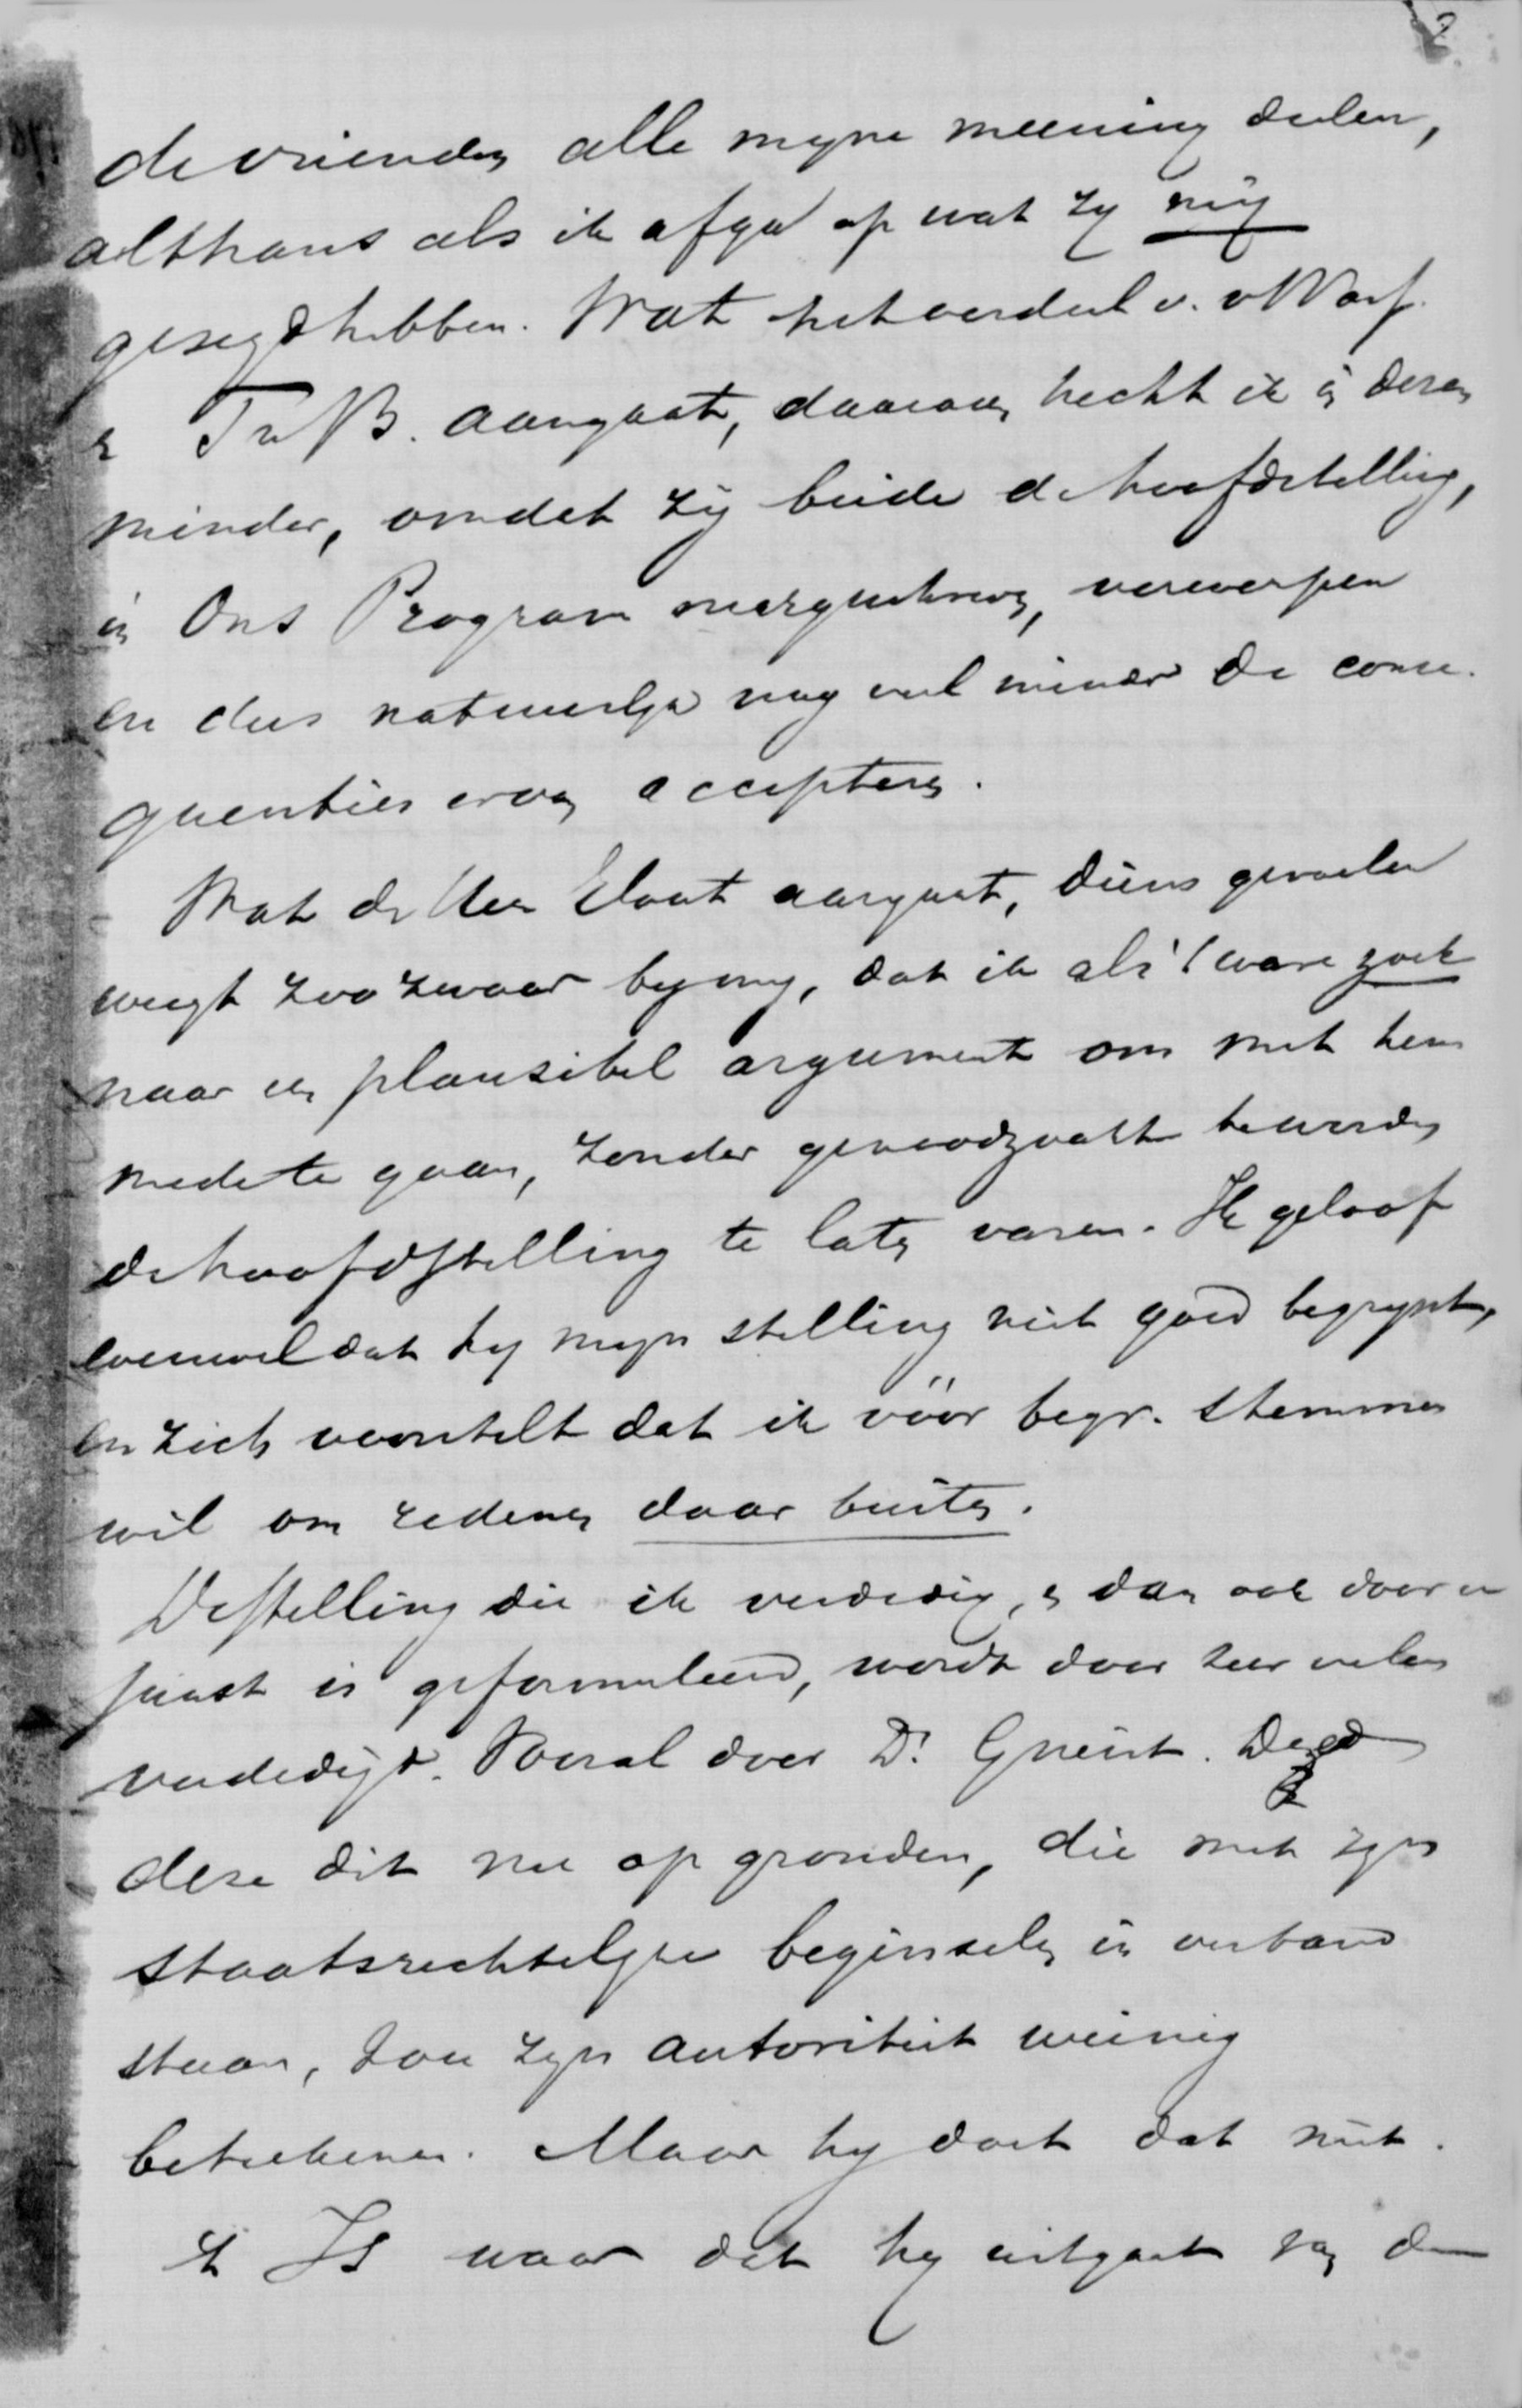 2
de vrienden alle myne meening deelen,
althans als ik afga op wat zy mij
gezegd hebben. Wat het oordeel v. v Wasf.
en Tr. B. aangaat, daaraan hecht ik in dezen
minder, omdat zij beide de hoofdstelling,
in Ons Program neergeschreven, verwerpen
en dus natuurlyk nog veel minder de conse-
quenties ervan accepteren.
Wat de Heer Elout aangaat, diens gevoelen
weegt zoo zwaar by my, dat ik als 't ware zoek
naar een plausibel argument om met hem
mede te gaan, zonder genoodzaakt te worden
de hoofdstelling te laten varen. Ik geloof
evenwel dat hy myn stelling niet goed begrypt,
en zich voorstelt dat ik vóór begr. stemmen
wil om redenen daar buiten.
De stelling die ik verdedig, en dan ook door u
juist is geformuleerd, wordt door zeer velen
verdedigd. Vooral door Dr. Gneist. Deed
deze dit nu op gronden, die met zyn
staatsrechtelyke beginselen in verband
staan, zou zyn autoriteit weinig
beteekenen. Maar hy doet dat niet.
't Is waar dat hy uitgaat van de